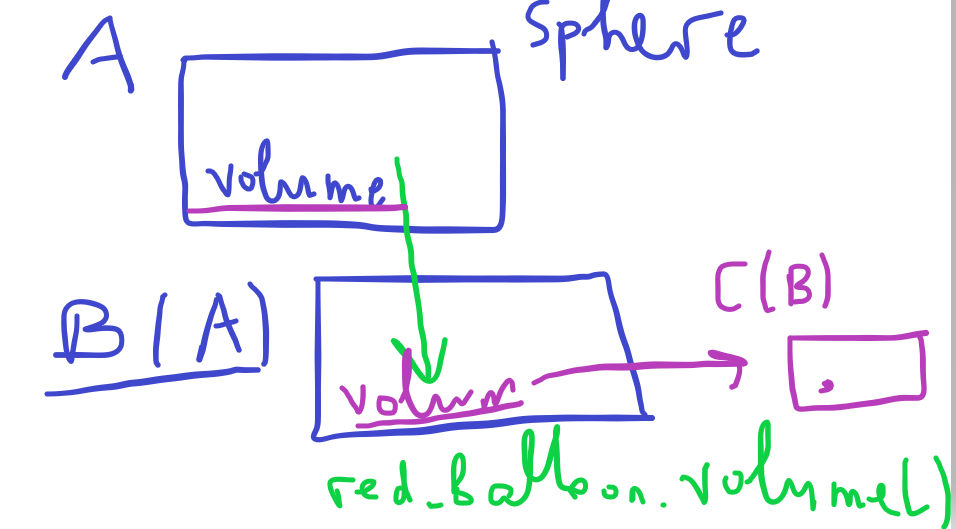 A
Sphere
volume
B(A)
C(B)
volume
red_Balloon.volume()